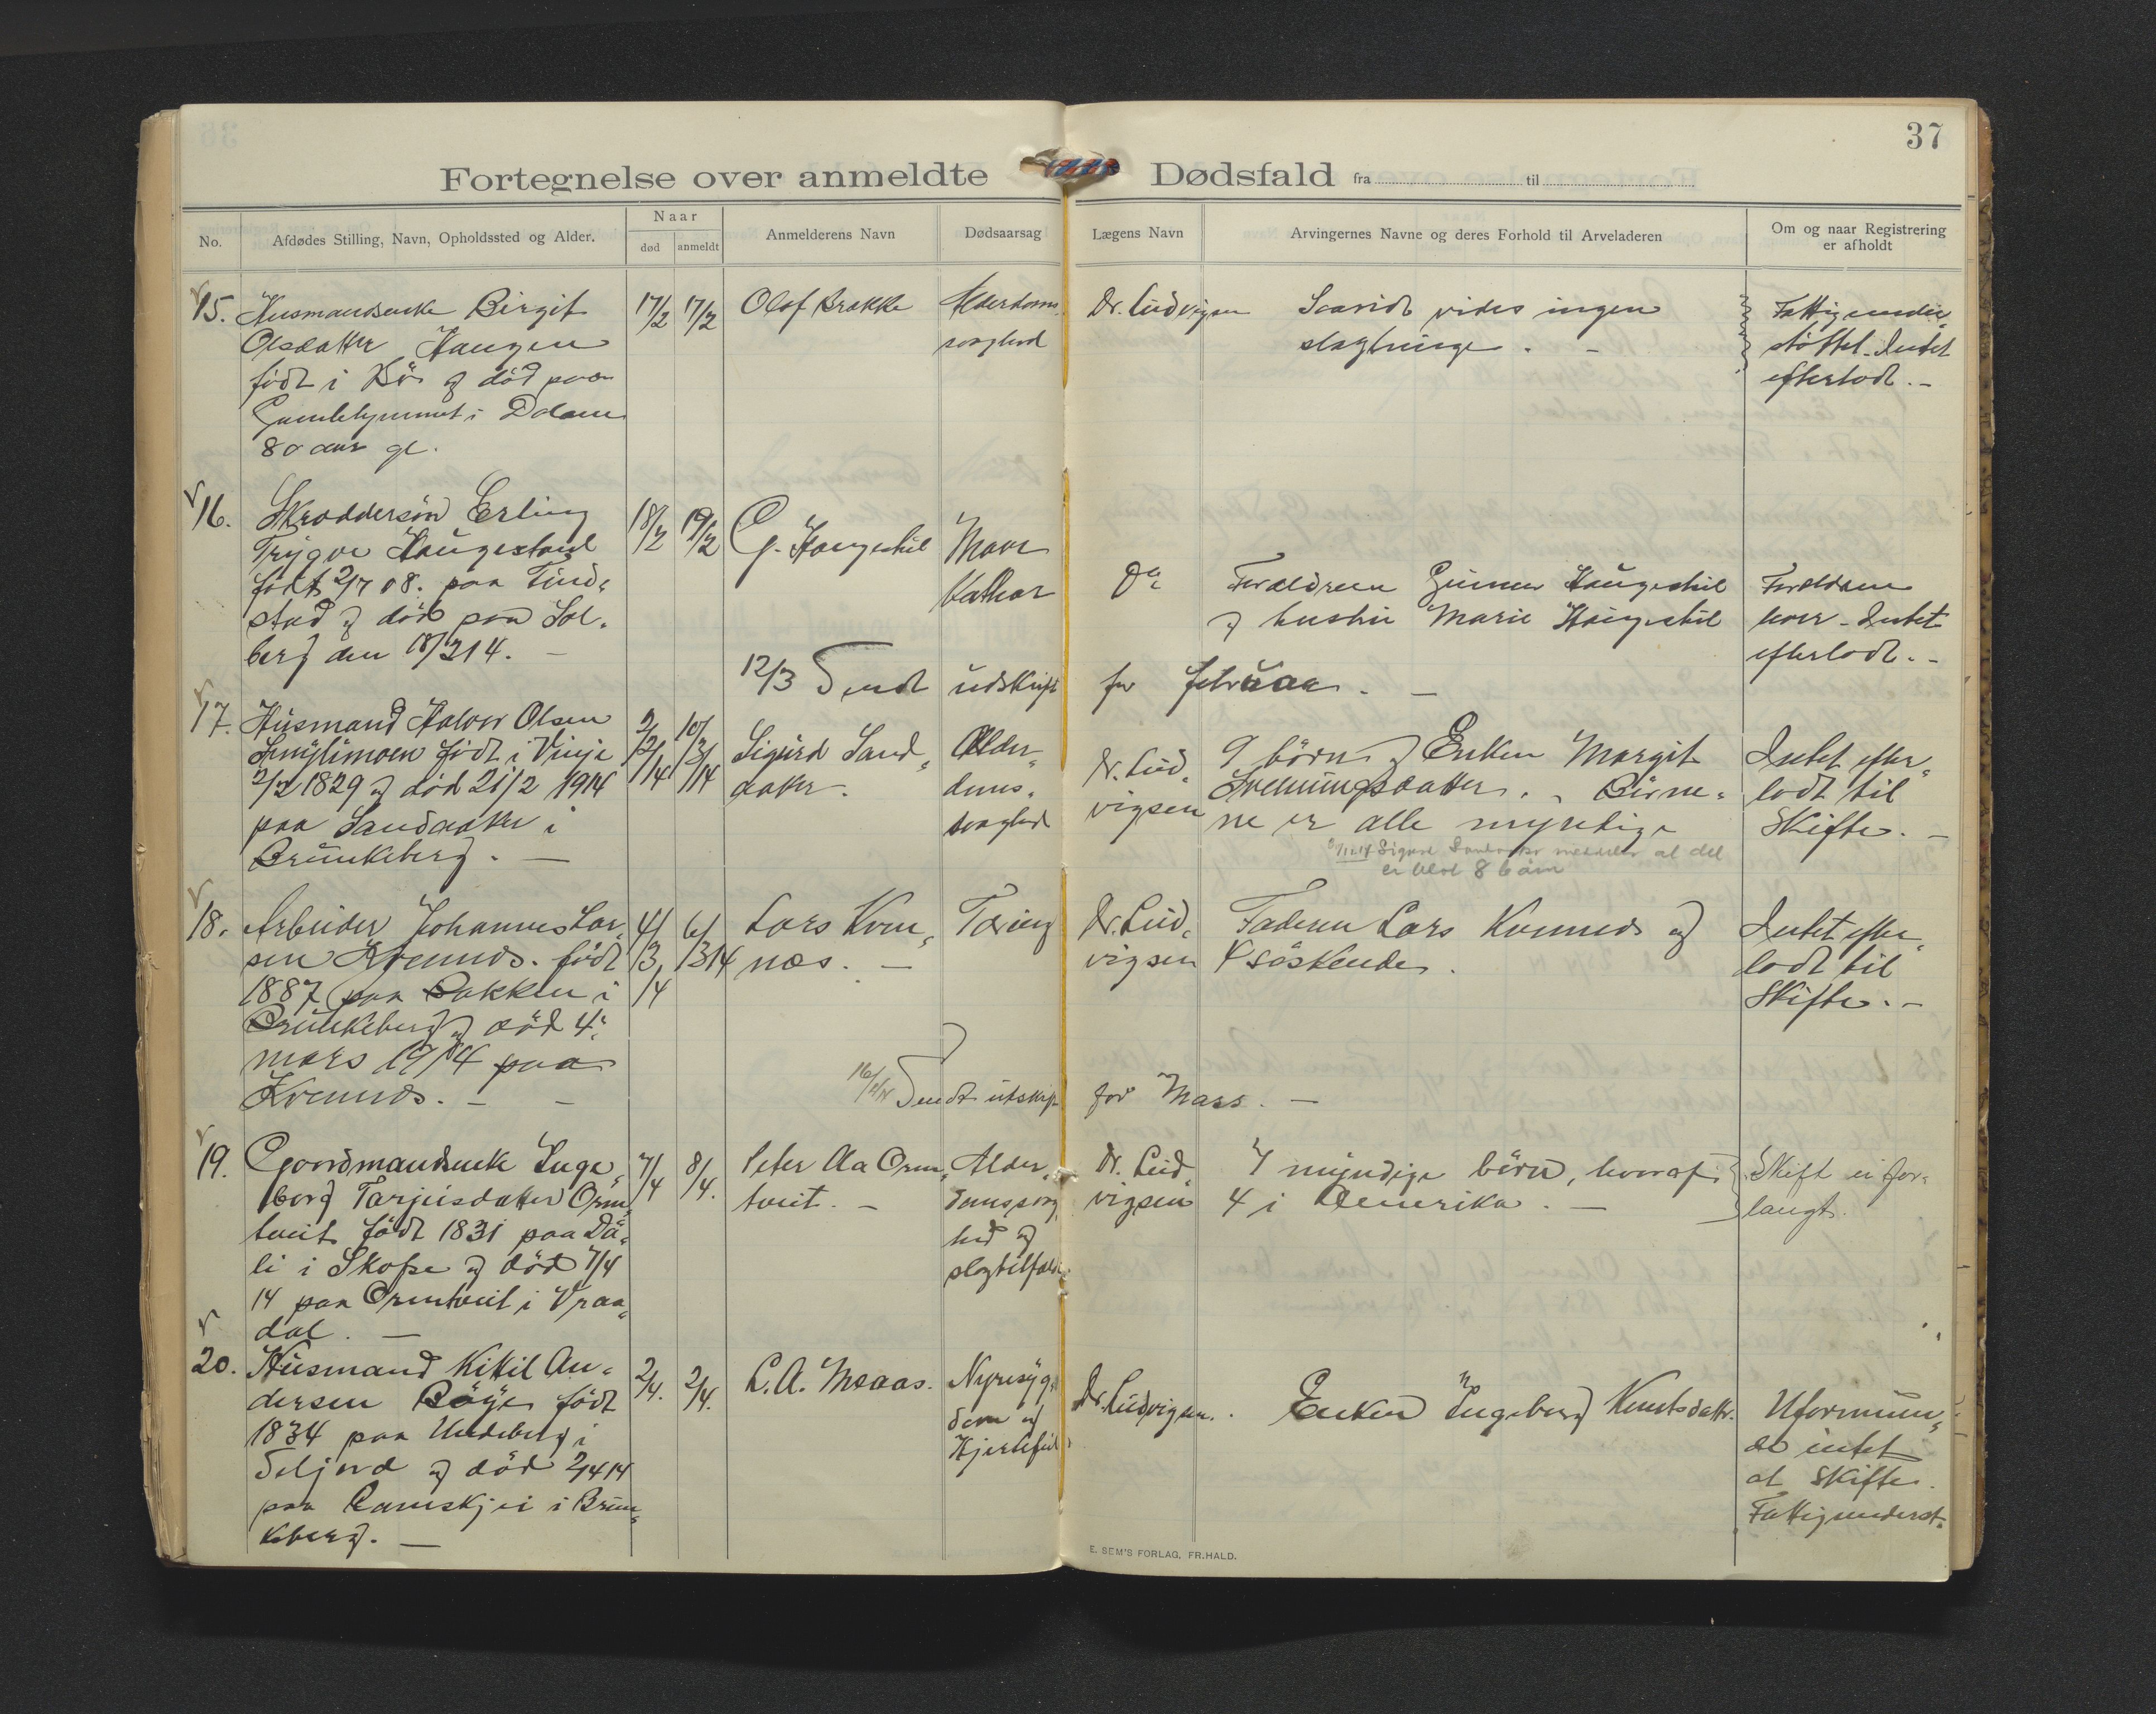 37
Fortegnelse over anmeldte Dødsfald fra til
No.
Afdødes Stilling, Navn, Opholdssted og Alder.
Naar
død
anmeldt
Anmelderens Navn
Dødsaarsag
Lægens Navn
Arvingernes Navne og deres Forhold til Arveladeren
Om og naar Registrering
er afholdt
15. Husmandsenke Birgit
Olsdatter Haugen
født i Bø og död paa
Gamlehjemmet i Dalane
80 aar gl.
17/2
17/2
Olaf Brakke
Alderdoms
svaghed
Dr. Ludvigsen
Saavidt vides ingen
slagtninge . -
Fattigunder-
støttet. Intet
efterladt. -
16. Skræddersön Erling
Trygve Haugestøil
født 2/7 08. paa Tind-
stad og död paa Sol-
berg den 18/2 14. -
18/2
19/2
G. Haugestøil
Mave
Kathar
Do
Forældrene Gunnar Haugestøil
og hustru Marie Haugestøil
Forældrene
lever. Intet
efterladt. -
12/3 Sendt udskrift for februar. -
17. Husmand Halvor Olsen
Smylimoen født i Vinje
2/2 1829 og död 21/2 1914
paa Sandaaker i
Brunkeberg. -
2/
2/
14
10/
3/
14
Sigurd Sand-
aaker.
Alder-
doms-
svaghed
Dr. Lud-
vigsen
9 børn og Enken Margit
Svenningsdatter. - Börne-
ne er alle myndige
Sigurd Sandaaker meddeler at det
er blot 8 børn
Intet efter-
ladt til
Skifte. -
18. Arbeider Johannes Lar-
sen Kvennos. født
1887 paa Bakken i
Brunkeberg og död 4.
mars 1914 paa
Kvennos. - -
4/
3/
14
6/
3 14
Lars Kven-
nos. -
Tæring
Dr. Lud-
vigsen
Faderen Lars Kvennos og
4 söskende.
Intet efter-
ladt til
Skifte. -
Sendt utskrift for Mars. -
19. Gaardmandsenke Inge-
borg Tarjeisdatter Orm-
tveit født 1831 paa Dä-
li i Skafse og död 7/4
14 paa Ormtveit i Vraa-
dal. -
7/4
8/4.
Peter Aa Orm-
tveit. -
Alder-
domssvag-
hed og
slagtilfælde
Dr. Lud-
vigsen
7 myndige børn, hvoraf
4 i Amerika. -
Skift ei for-
langt.
20. Husmand Kittil An-
dersen Böye født
1834 paa Undeberg i
Seljord og död 2/4 14
paa Ramskjei i Brun-
keberg. -
2/4.
2/4.
L. A. Moaas.
Nyresyg-
dom og
Hjertefeil
Dr. Ludvigsen.
Enken Ingeborg Knutsdatter.
Uformuen-
de intet
at skifte.
Fattigunderst.
E. SEM'S FORLAG, FR.HALD.